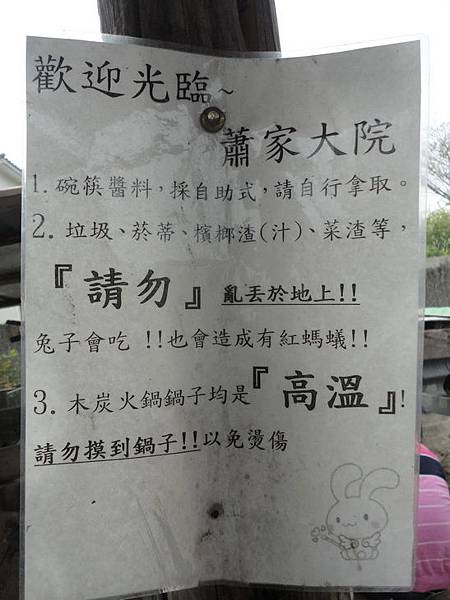 歡迎光臨~
蕭家大院
1. 碗筷醬料，採自助式，請自行拿取。
2. 垃圾、菸蒂、檳榔渣(汁)、菜渣等，
『請勿』亂丟於地上!!
兔子會吃 !!也會造成有紅螞蟻!!
3. 木炭火鍋鍋子均是『高溫』!
請勿摸到鍋子!!以免燙傷